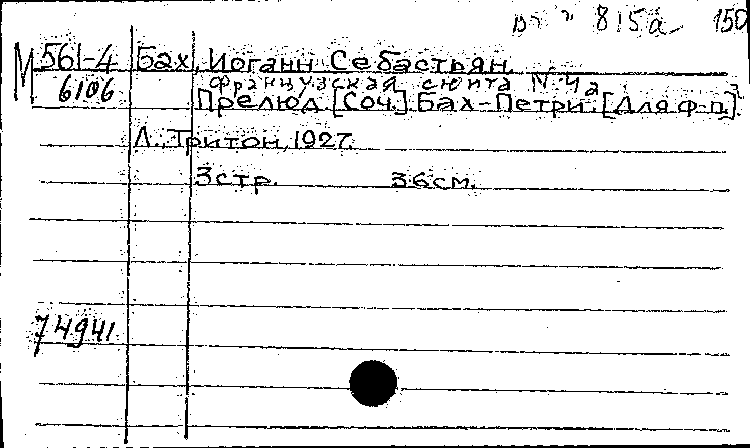 815а 150
М 561-4 Бах, Иоганн Себастьян.
Французская сюита N 4а
6106 Прелюд. [Соч.] Бах-Петри. [Для ф-п.]
Л., Тритон, 1927.
3 стр. 36 см.
74941